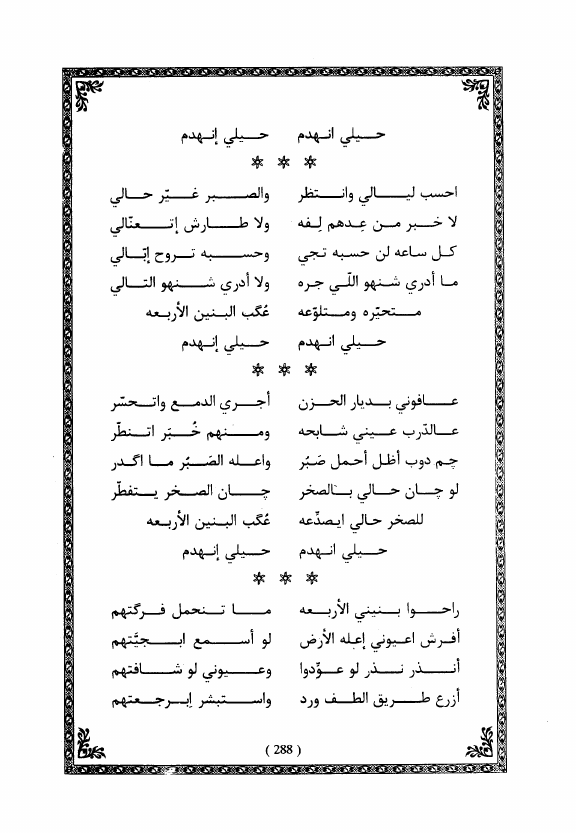 حيلي انهدم حيلي إنهدم
* * *
احسب ليالي وانتظر والصبر غيّر حالي
لا خبر من عدهم لِفه ولا طارش إتعنّالي
كل ساعه لن حسبه تجي وحسبه تروح إبّالي
ما أدري شنهو اللّي جره ولا أدري شنهو التالي
متحيّره ومتلوّعه عُكب البنين الأربعه
حيلي انهدم حيلي إنهدم
* * *
عافوني بديار الحزن أجري الدمع واتحسّر
عالدّرب عيني شابحه ومنهم خُبَر اتنطّر
چم دوب أظل أحمل صَبُر واعله الصَبُر ما اگدر
لو چان حالي بالصخر چان الصخر يتفطّر
للصخر حالي ايصدّعه عُكب البنين الأربعه
حيلي انهدم حيلي إنهدم
* * *
راحوا بنيني الأربعه ما تنحمل فرگتهم
أفرش اعيوني إعله الأرض لو أسمع ابجيَّتهم
أنذر نذر لو عوّدوا وعيوني لو شافتهم
أزرع طريق الطف ورد واستبشر إبرجعتهم
( 288 )